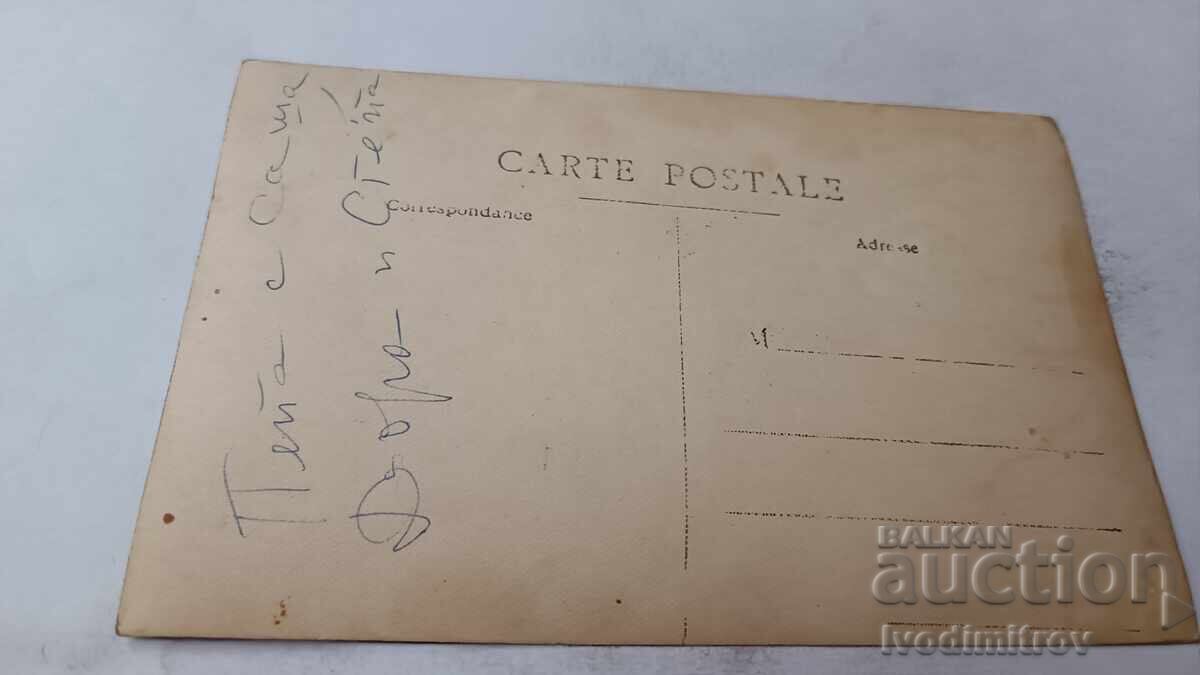 CARTE POSTALE
Correspondance
Adresse
M
с Саша
и
BALKAN
auction
Ivodimitrov